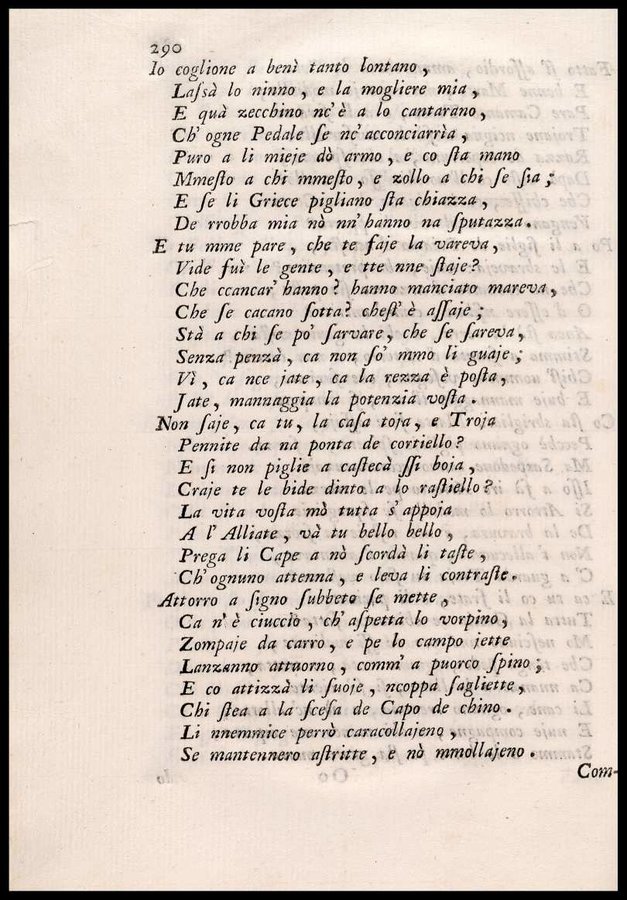 290
Io coglione a benì tanto lontano,
Laſsà lo ninno, e la mogliere mia,
E quà zecchino nc'è a lo cantarano,
Ch' ogne Pedale ſe nc' acconciarrìa,
Puro a li mieje dò armo, e co ſta mano
Mmeſto a chi mmeſto, e zollo a chi ſe ſia;
E ſe li Griece pigliano ſta chiazza,
De rrobba mia nò nn' hanno na ſputazza.
E tu mme pare, che te faje la vareva,
Vide fuì le gente, e tte nne ſtaje?
Che ccancar' hanno? hanno manciato mareva,
Che ſe cacano ſotta? cheſt' è aſſaje;
Stà a chi ſe po' ſarvare, che ſe ſareva,
Senza penzà, ca non ſo' mmo li guaje;
Vì, ca nce jate, ca la rezza è poſta,
Jate, mannaggia la potenzia voſta.
Non ſaje, ca tu, la caſa toja, e Troja
Pennite da na ponta de cortiello?
E ſi non piglie a caſtecà ſſi boja,
Craje te le bide dinto a lo raſtiello?
La vita voſta mò tutta s' appoja
A l' Alliate, và tu bello bello,
Prega li Cape a nò ſcordà li taſte,
Ch' ognuno attenna, e leva li contraſte.
Attorro a ſigno ſubbeto ſe mette,
Ca n' è ciuccio, ch' aſpetta lo vorpino,
Zompaje da carro, e pe lo campo jette
Lanzanno attuorno, comm' a puorco ſpino;
E co attizzà li ſuoje, ncoppa ſagliette,
Chi ſtea a la ſceſa de Capo de chino.
Li nnemmice perrò caracollajeno,
Se mantennero aſtritte, e nò mmollajeno.
Com-